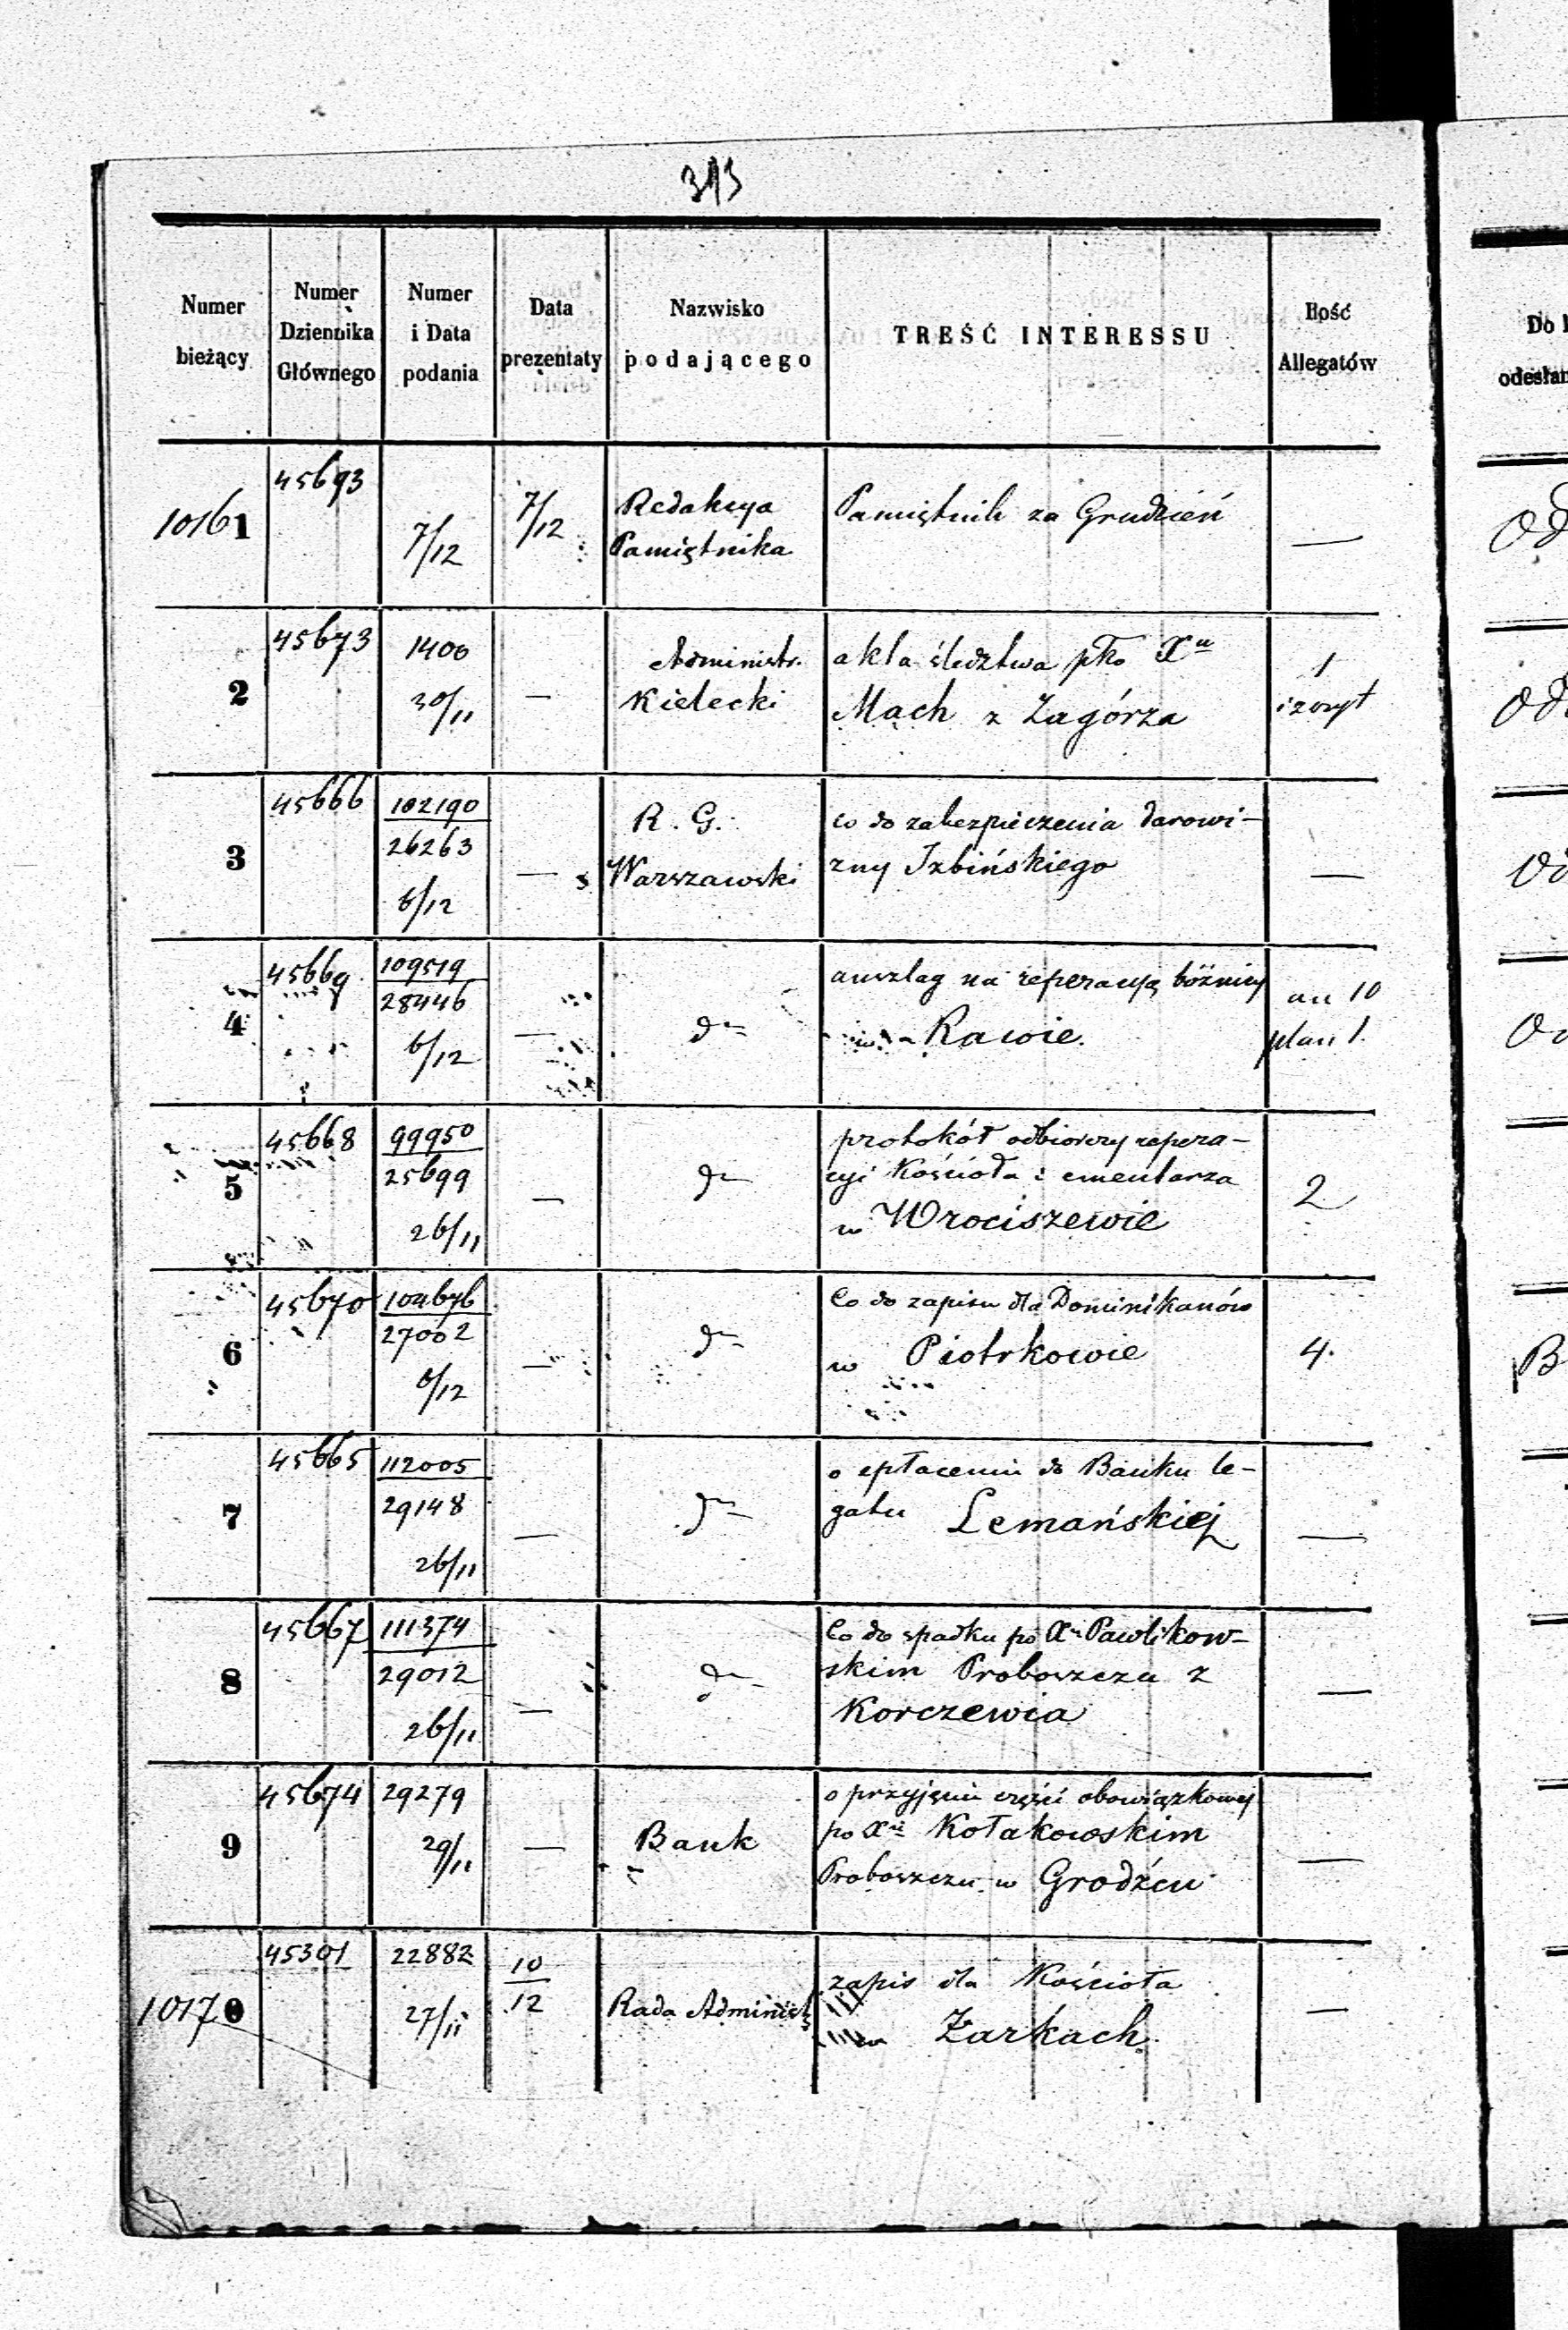 313
Numer bieżący
Numer Dziennika Głównego
Numer i Data podania
Data prezentaty
Nazwisko podającego
TREŚĆ INTERESSU
Ilość Allegatów
10161
45693
7/12
7/12
Redakcya
Pamiętnika
Pamiętnik za Grudzień
—
2
45673
1400
30/11
—
Administr.
Kielecki
akta śledztwa pko Xu
Mach z Zagórza
1
3
45666
102190
26263
6/12
—
R. G.
Warszawski
co do zabezpieczenia darowi-
zny Izbińskiego
—
4
45669
109519
28446
6/12
—
do
anszlag na reperacyą bóżnicy
w Rawie.
an 10
plan 1.
5
45668
99950
25699
26/11
—
do
protokół odbiorczy repera-
cyi Kościoła i cmentarza
w Wrociszewie
2
6
45670
104676
27002
6/12
—
do
Co do zapisu dla Dominikanów
w Piotrkowie
4.
7
45665
112005
29148
26/11
—
do
o spłaceniu do Banku le-
gatu Lemańskiej
—
8
45667
111374
29012
26/11
—
do
Co do spadku po Xu Pawlikow-
skim Proboszczu z
Korczewia
—
9
45674
29279
29/11
—
Bank
o przyjęciu części obowiązkowej
po Xu Kołakowskim
Proboszczu w Grodźcu
—
10170
45301
22882
27/11
10/12
Rada Administ
zapis dla Kościoła
w Żarkach.
—
Do
odesłan